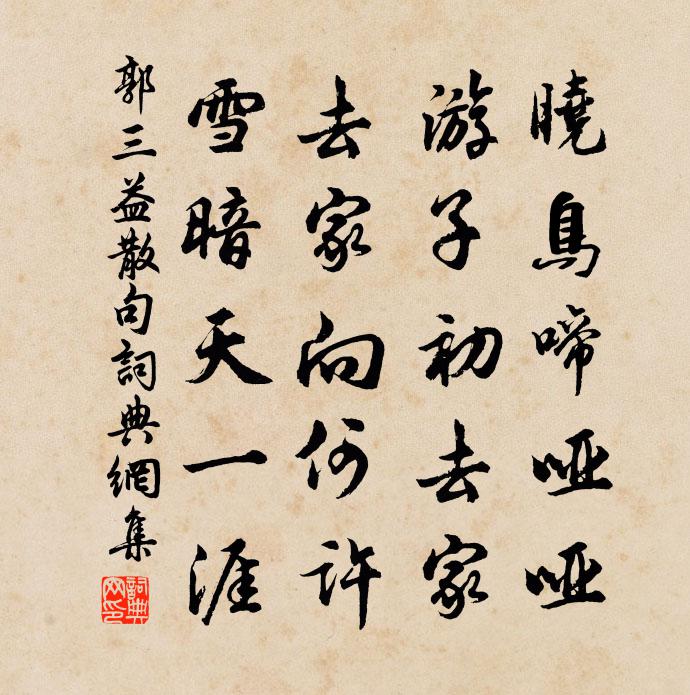 曉烏啼哑哑
游子初去家
去家向何許
雪暗天一涯
郭三益散句詞典網集
詞典
网印